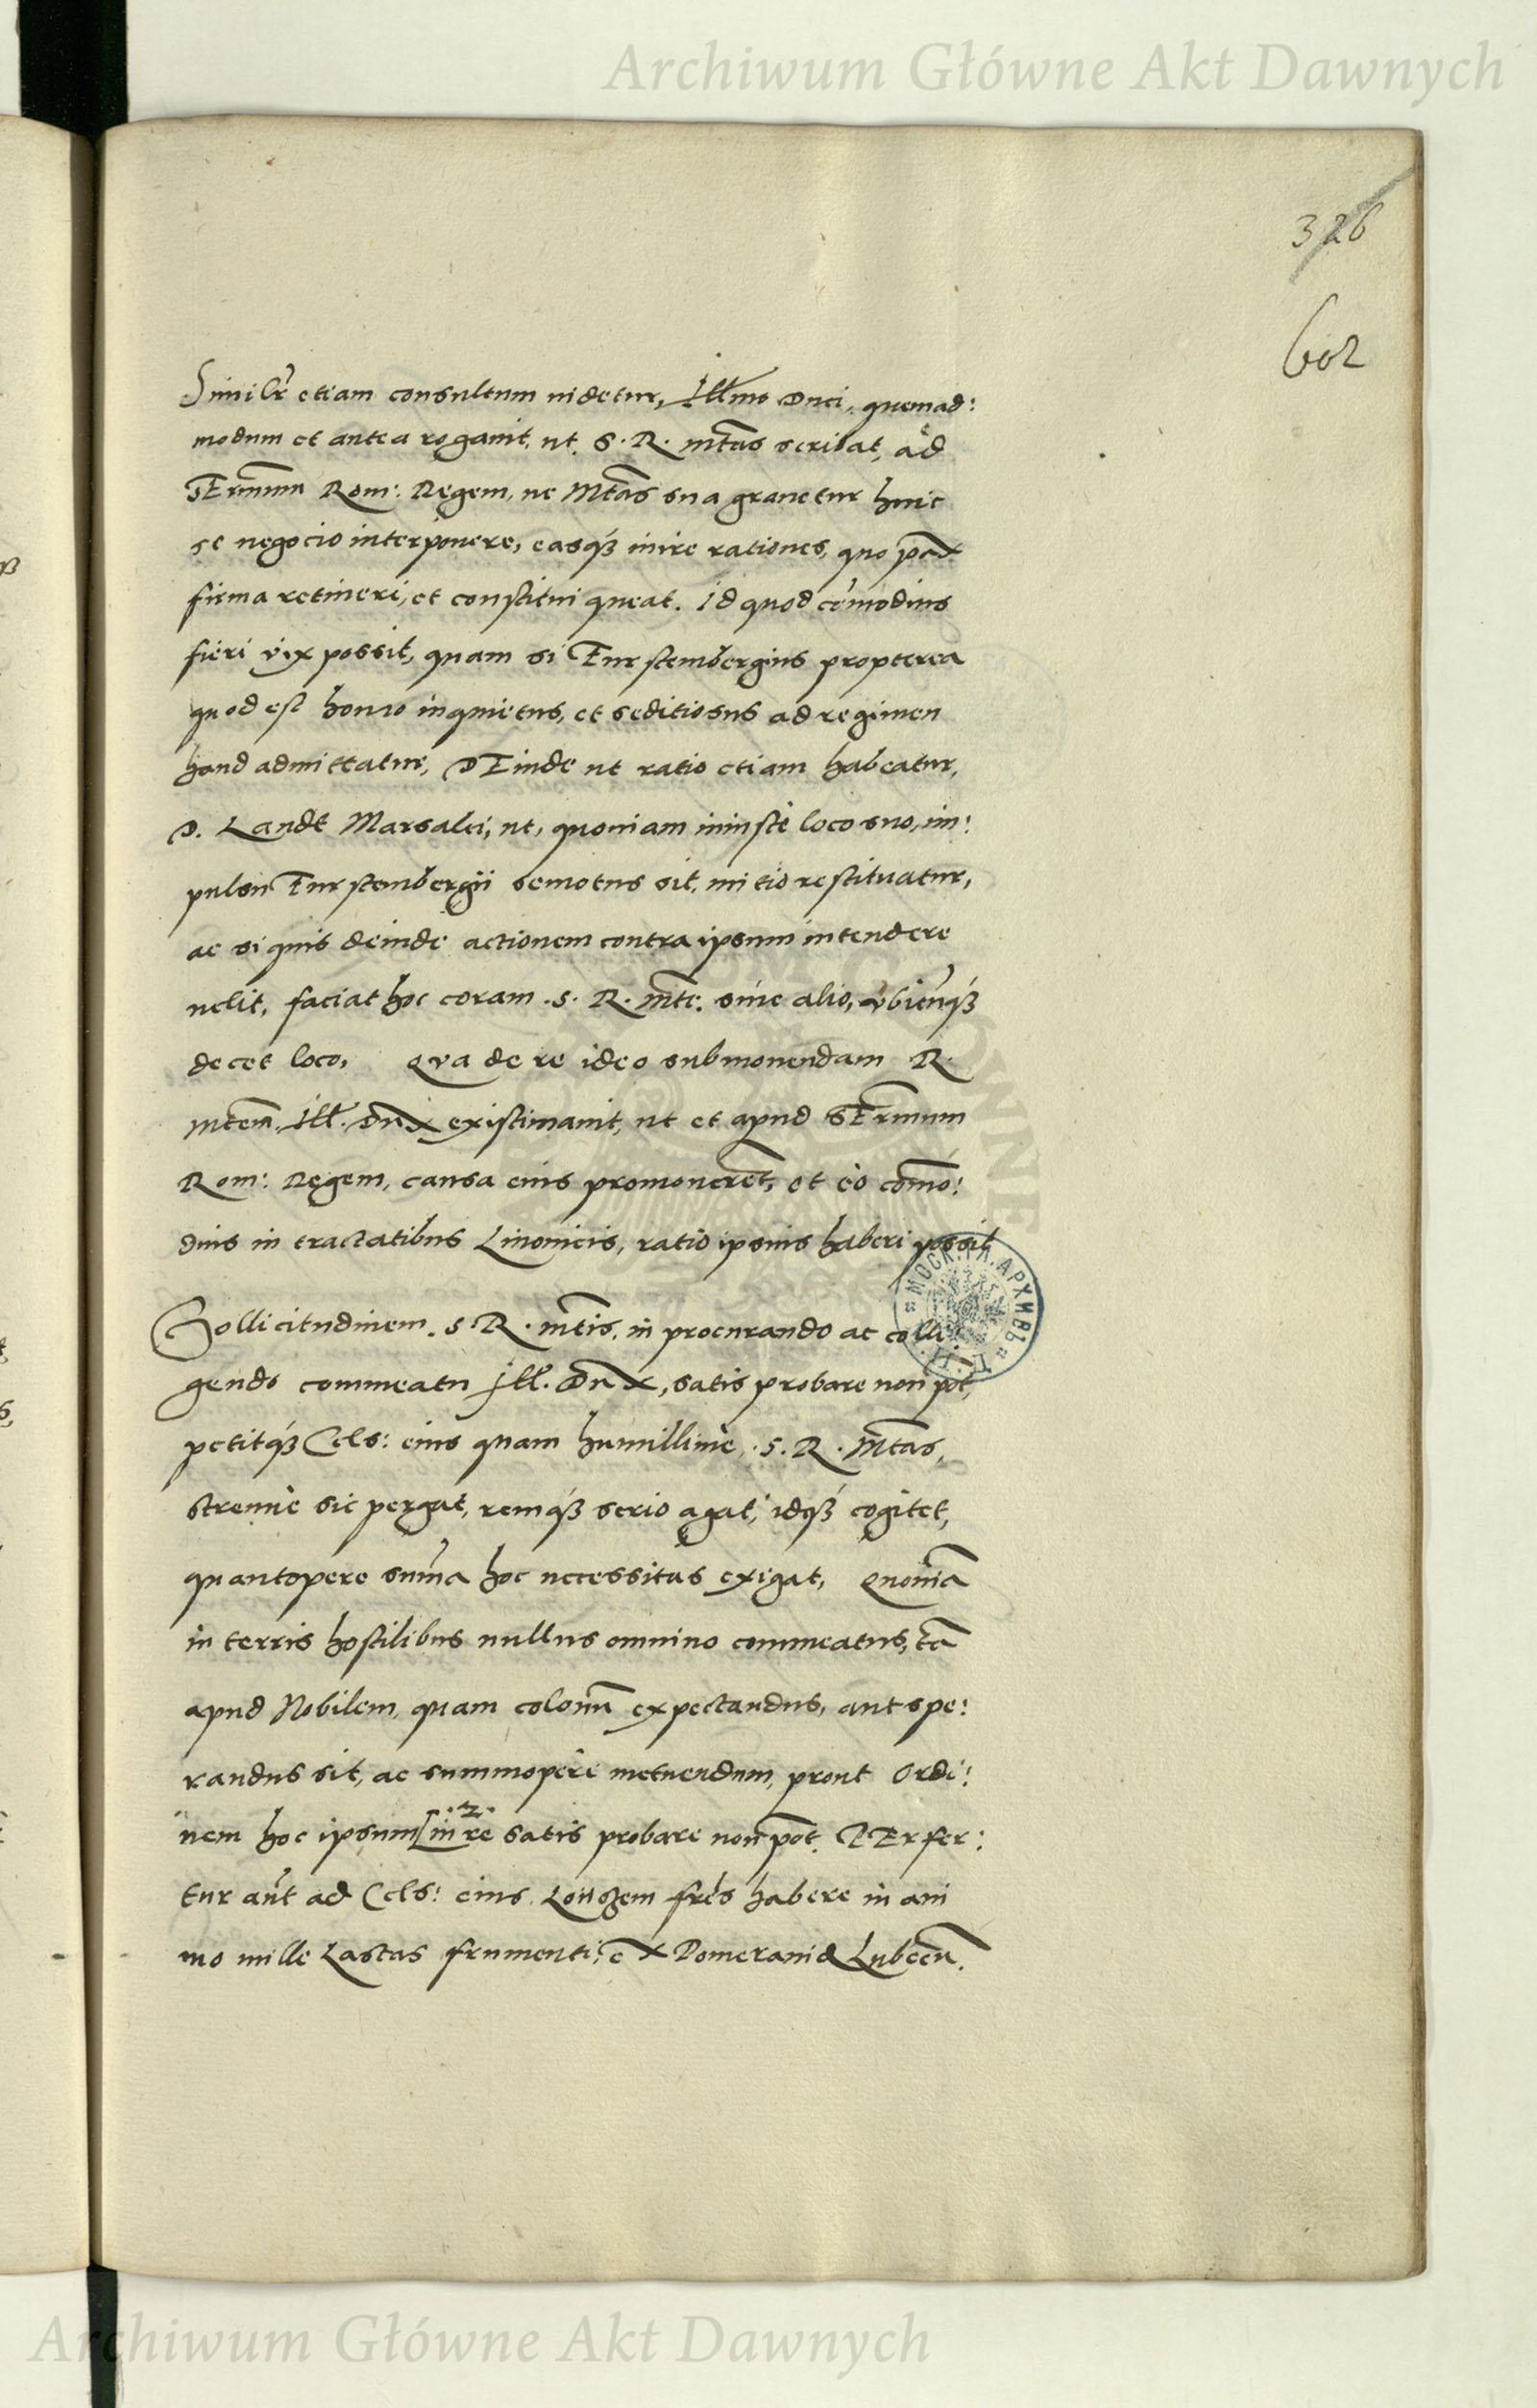 Archiwum Główne Akt Dawnych
326
602
Similr̃ etiam consultum uidetur, Illmo Duci, quemad:
modum et antea rogauit, ut S. R. mtas scribat, ad
SErmum Rom: Regem, ne Mtas sua grauetur huic
se negocio interponere, easq́ʒ inire rationes, quo pax
firma retineri, et constitui queat. Id quod cõmodius
fieri vix possit, quam si Furstembergius propterea
quod est homo inquietus, et seditiosus ad regimen
haud admittatur, DEinde ut ratio etiam habeatur,
D. Landt Marsalci, ut, quoniam iniustè loco suo, im:
pulsu Furstembergii semotus sit, initio restituatur,
ac si quis deinde actionem contra ipsum intendere
uelit, faciat hoc coram .S. R. mte. siue alio, vbicũq́ʒ
decet loco, Qva de re ideo submonendam R.
mtem. Ill. Dux existimauit, ut et apud SErmum
Rom: Regem, causa eius promoueret, et eò com̃o:
dius in tractatibus Liuonicis, ratio ipsius haberi possit
Sollicitudinem. S. R. mtis, in procurando ac colli:
gendo commeatu Ill. Dux, satis probare non pot,
petitq́ʒ Cels: eius quam humillimè, .S. R. Mtas,
strenuè sic pergat, remq́ʒ serio agat, idq́ʒ cogitet,
quantopere sum̃a hoc necessitas exigat, Quoniã
in terris hostilibus nullus omnino commeatus, tã
apud Nobilem, quam colonũ expectandus, aut spe:
randus sit, ac summopere metuendum, prout Ordi:
nem hoc ipsum [in re satis probare non pot. PErfer:
tur aũt ad Cels: eius. Loitzem frẽs habere in ani
mo mille Lastas frumenti, ex Pomerania Lubecũ.
МОСК. ГЛ. АРХИВЪ
Archiwum Główne Akt Dawnych